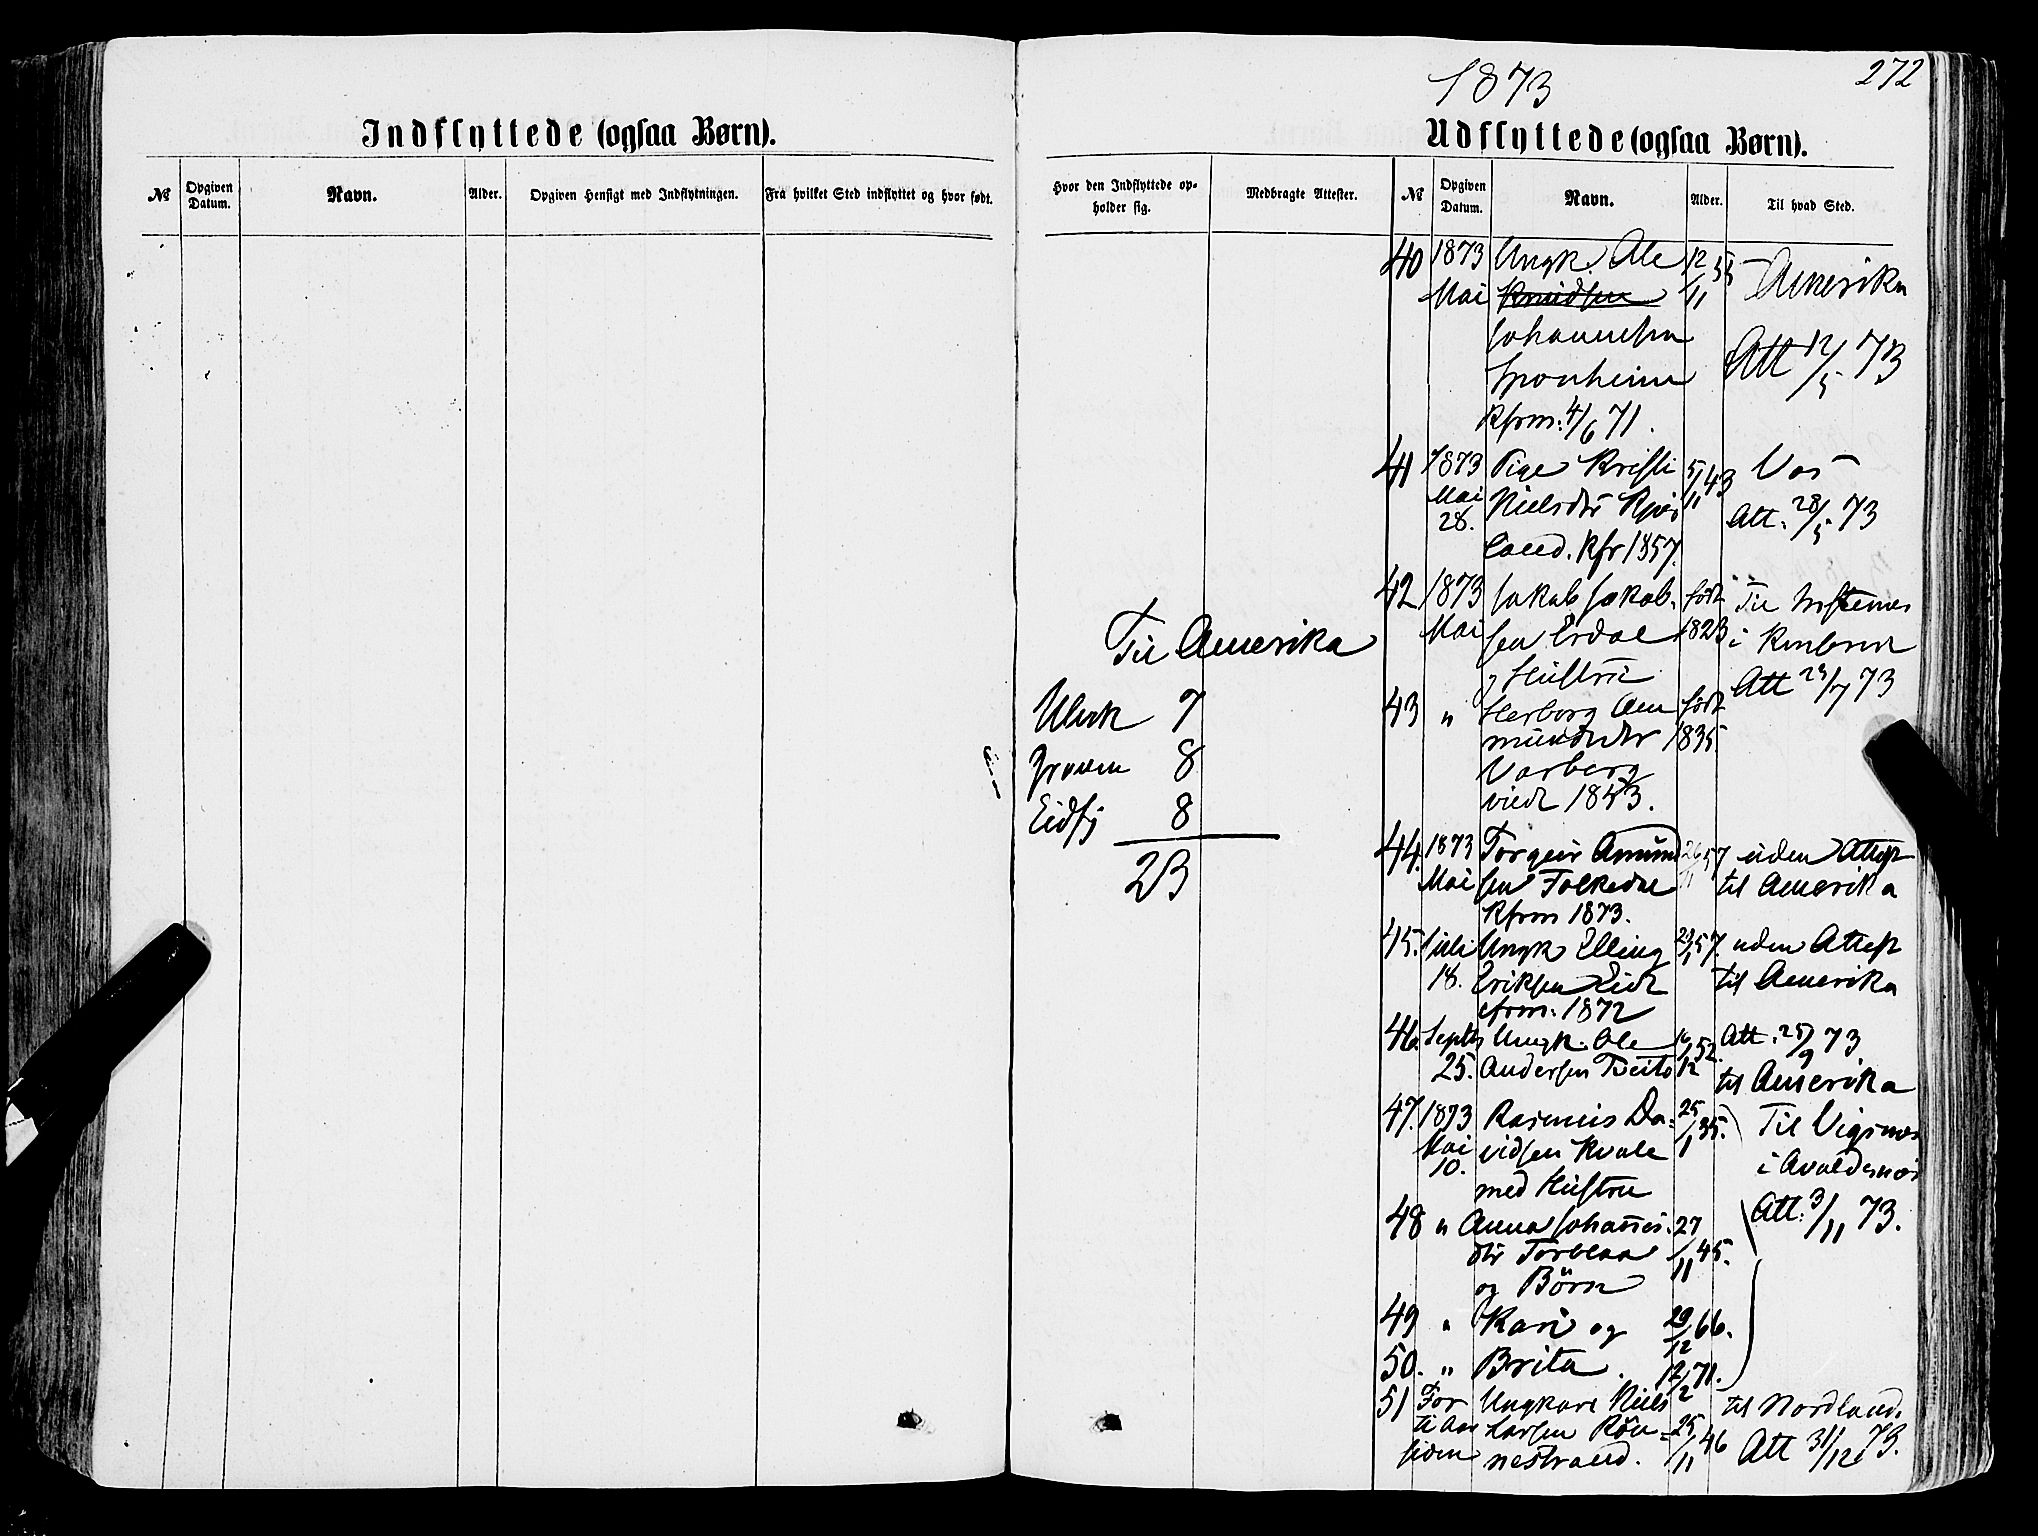 1873
272
Indflyttede (ogsaa Børn).
Udflyttede (ogsaa Børn).
№
Opgiven Datum.
Navn.
Alder.
Opgiven Hensigt med Indflytningen.
Fra hvilket Sted indflyttet og hvor født.
Hvor den Indflyttede opholder sig.
Medbragte Attester.
№
Opgiven Datum.
Navn.
Alder.
Til hvad Sted.
40 1873 Ungk. Ole 12 55 Amerika
Mai Knudsen 11
Johannesen
Sponheim Att 12/5 73
Kfrm. 4/6 71.
41 1873 Pige Kristi 5/11 43 Vos
Mai Nielsdtr
28. land. Kfr 1857. Att. 28/5 73
42 1873 Jakob Jakob- født Til
Mai sen Erdal 1823 i
og Hustru Att 29/7 73
43 " Herborg Am født
mundsdtr 1835.
Varberg
viede 1853.
Til Amerika
Ulvik 7
Graven 8
Eidfj 8
23
44. 1873 Torgeir Amund 26/11 57 uden Attest
Mai sen Folkedal til Amerika
Kfrm 1873.
45. Juli Ungk Elling 57. uden Attest
18. Eriksen Eide til Amerika
cfrm. 1872
46. Septbr Ungk. Ole 16/12 52. Att. 25/9 73
25. Andersen Tveito til Amerika
47. 1873 Rasmus Da- 25/1 35. Til Vigsnes
Mai vidsen Kvale i Avaldsnes
10. med Hustru
48 " Anna Johannes- 27 Att. 3/11 73.
dtr Torblaa 11 45.
og Börn
49 " Kari og 29/12 66.
50. " Brita. 12/2 71.
51 For Ungkarl Niels til Nordland.
ti Aar Larsen Rön- 25/11 46 Att 31/12 73.
siden nestrand.